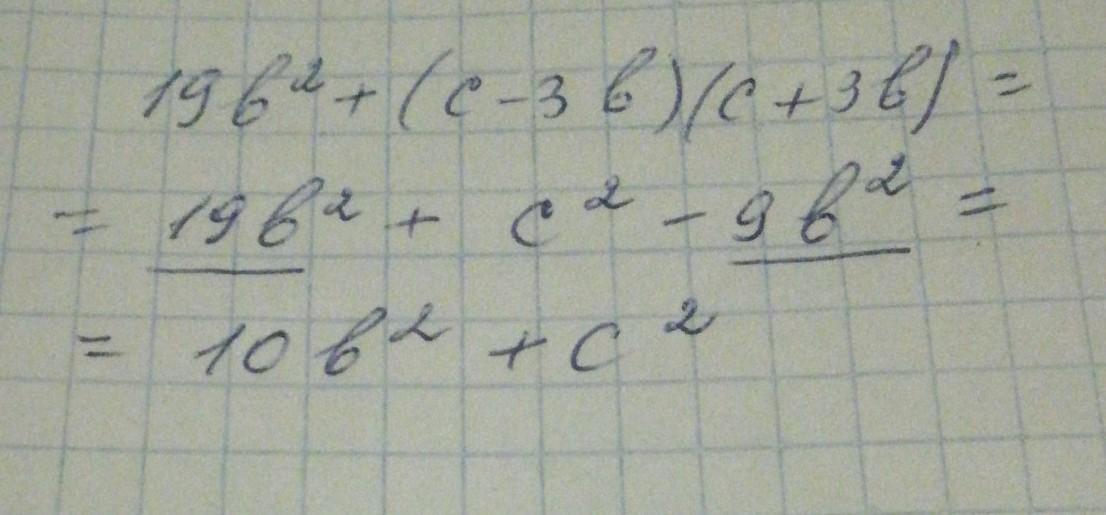 19b² + (c - 3b)(c + 3b) =
= 19b² + c² - 9b² =
= 10b² + c²